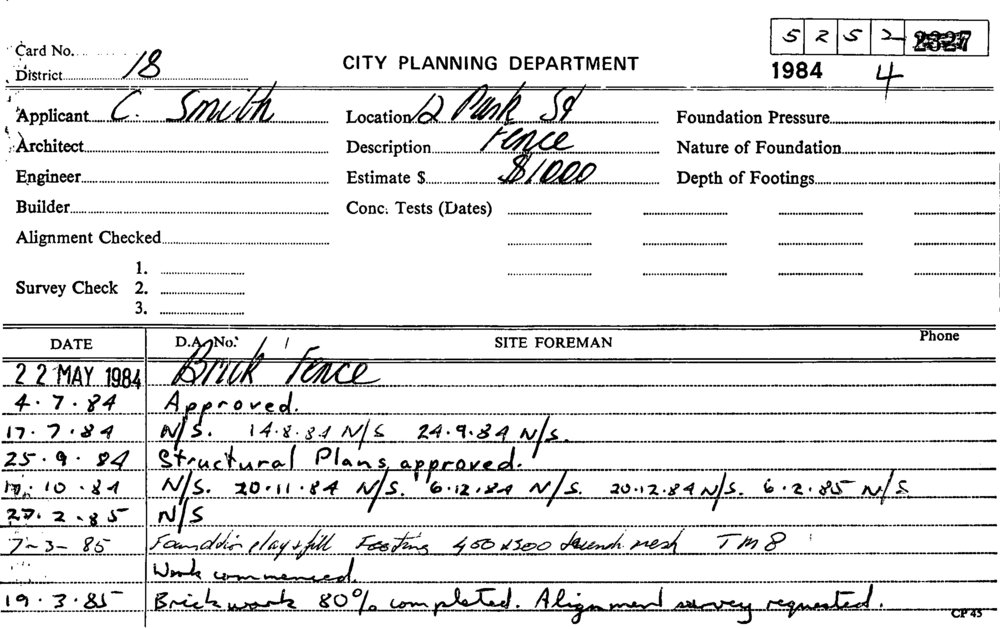 5 2 5 2 2327
Card No.
District 18
CITY PLANNING DEPARTMENT
1984 4
Applicant C. Smith
Location 12 Park St
Foundation Pressure
Architect
Description Fence
Nature of Foundation
Engineer
Estimate $ $1000
Depth of Footings
Builder
Conc. Tests (Dates)
Alignment Checked
1.
Survey Check 2.
3.
DATE D.A. No. SITE FOREMAN Phone
22 MAY 1984 Brick Fence
4.7.84 Approved.
17.7.84 N/S. 14.8.84 N/S 24.9.84 N/S.
25.9.84 Structural Plans approved.
10.84 N/S. 20.11.84 N/S. 6.12.84 N/S. 20.12.84 N/S. 6.2.85 N/S
27.2.85 N/S
7-3-85 clay & fill Footing 400x300 mesh TM8
Work commenced.
19.3.85 Brickwork 80% completed. Alignment survey requested.
CP 45